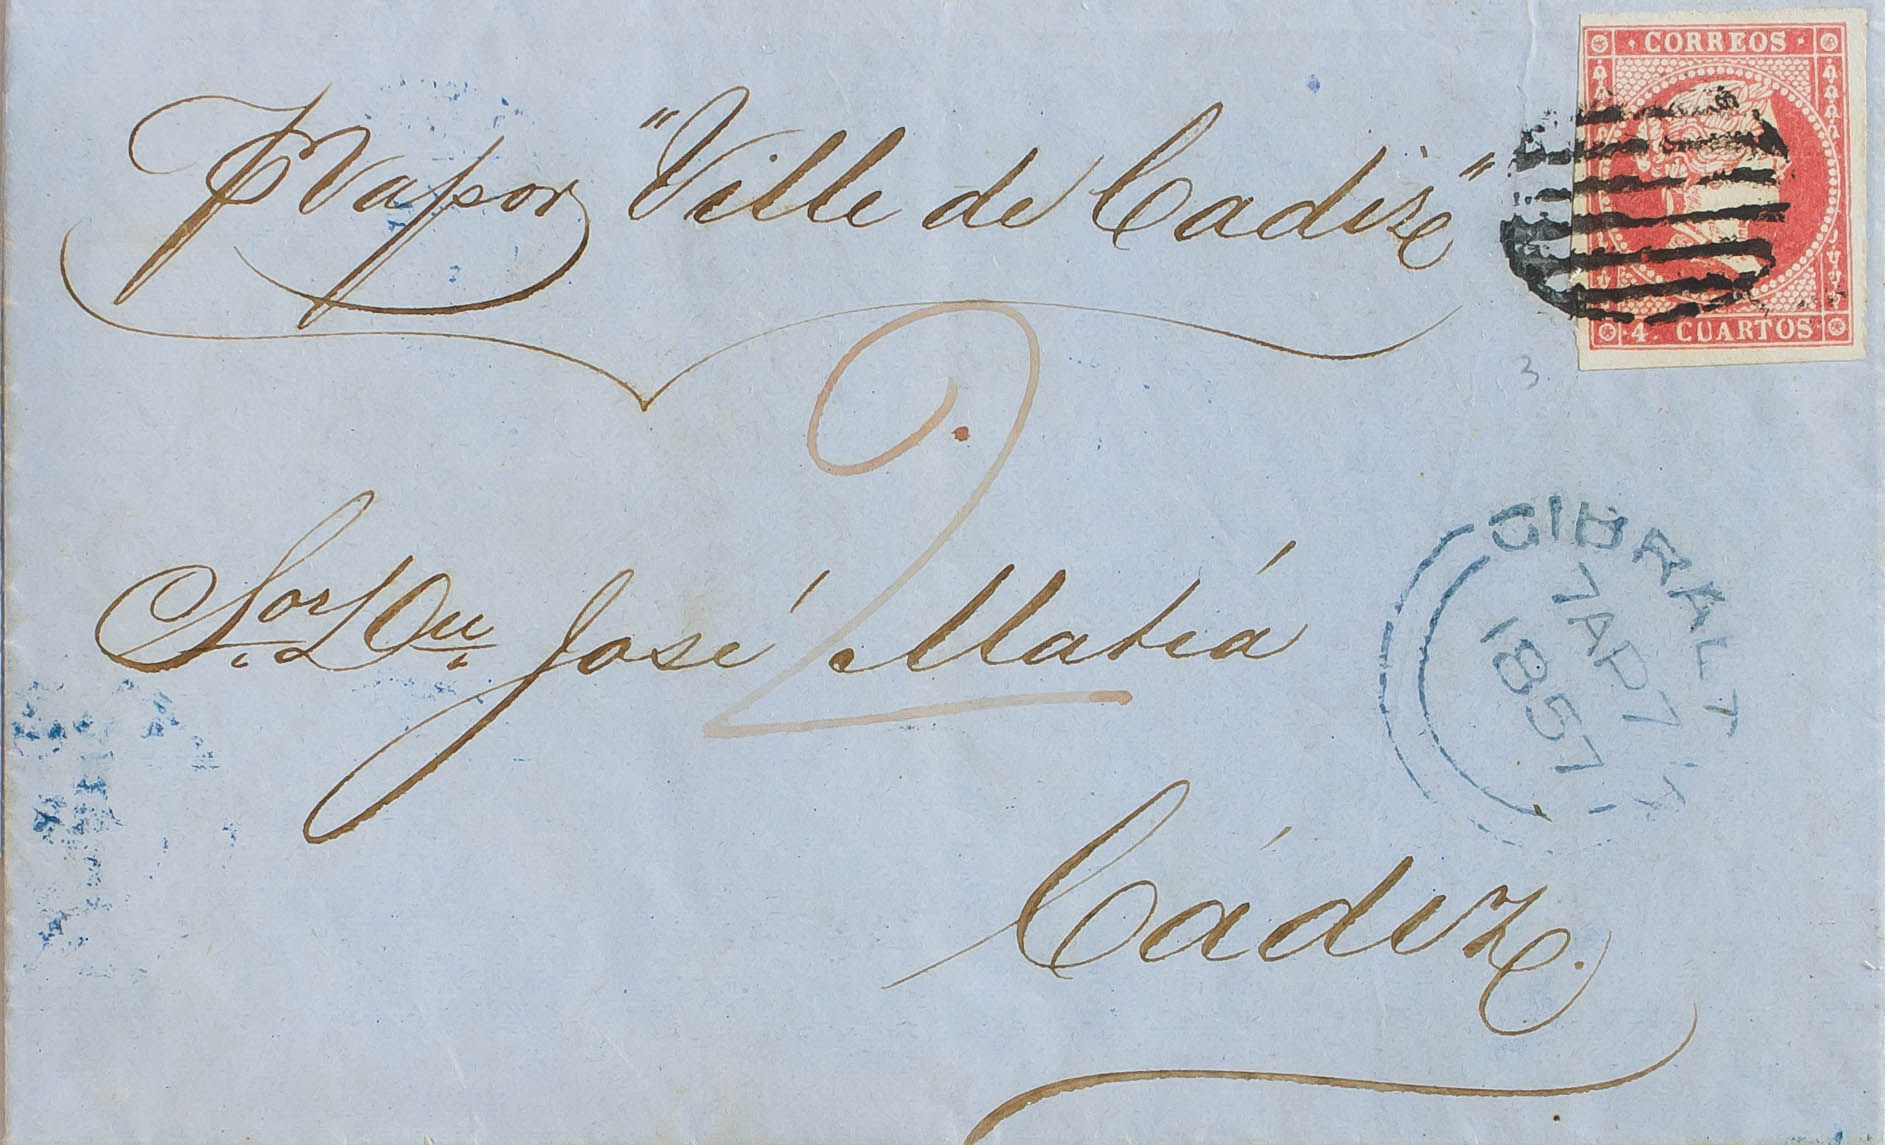 CORREOS
4 CUARTOS
P Vapor "Ville de Cadize"
3
2
Sor. Dn. José Matiá
GIBRALT
7 AP 7
1857
Cádiz.